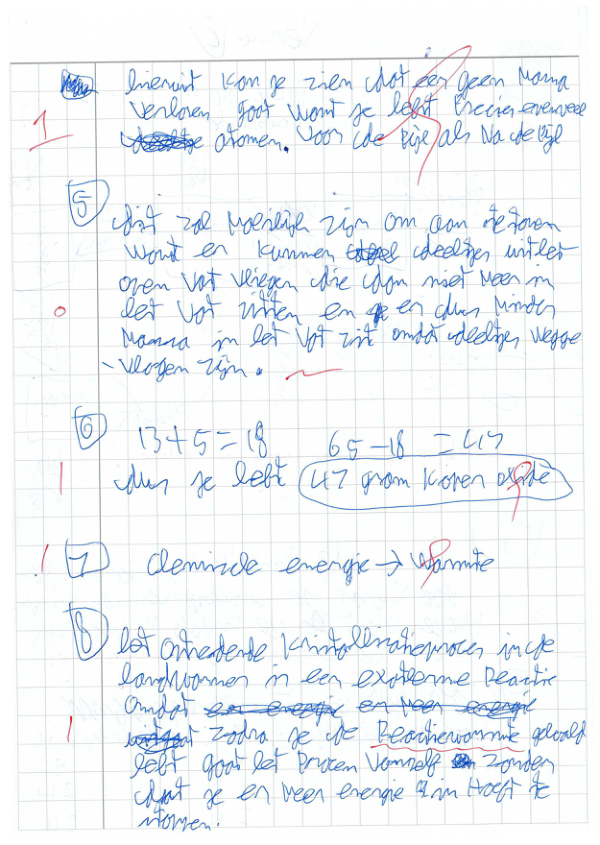 hieruit kan je zien dat er geen massa
verloren gaat want je hebt precies evenveel
1
atomen. Voor de pijl als Na de pijl
5
dit zal moeilijk zijn om aan te tonen
want er kunnen deeltjes uit het
open vat vliegen die dan niet meer in
0
het vat zitten en er dus minder
massa in het vat zit omdat deeltjes wegge
-vlogen zijn.
6
13+5=18 65-18 =47
1
dus je hebt 47 gram koper oxide
1
7
Chemische energie → warmte
8
het ontstaande kristallisatieproces in de
handwarmer is een exotherme reactie
omdat en energie er meer energie
1
zodra je de Reactiewarmte gehaald
hebt gaat het proces vanzelf zonder
dat je er meer energie in hoeft te
stoppen.